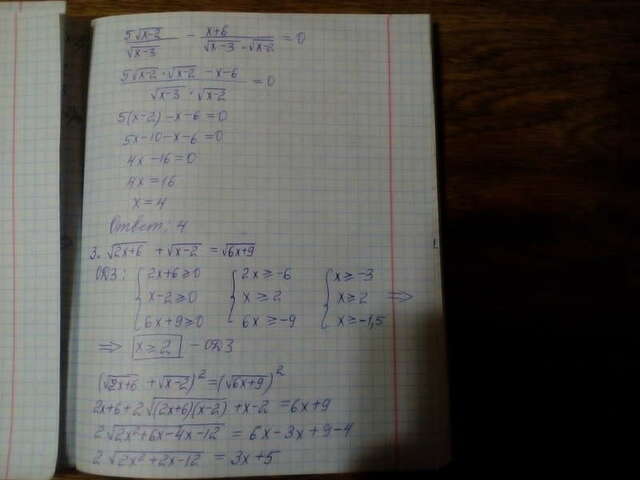 5√(x-2)/√(x-3) - (x+6)/(√(x-3)·√(x-2)) = 0
(5√(x-2)·√(x-2) - x - 6)/(√(x-3)·√(x-2)) = 0
5(x-2) - x - 6 = 0
5x - 10 - x - 6 = 0
4x - 16 = 0
4x = 16
x = 4
Ответ: 4
3. √(2x+6) + √(x-2) = √(6x+9)
ОДЗ: { 2x+6 ≥ 0 { 2x ≥ -6 { x ≥ -3
x-2 ≥ 0 x ≥ 2 x ≥ 2 ⇒
6x+9 ≥ 0 6x ≥ -9 x ≥ -1,5
⇒ x ≥ 2 - ОДЗ
(√(2x+6) + √(x-2))² = (√(6x+9))²
2x+6+2√((2x+6)(x-2)) + x-2 = 6x+9
2√(2x²+6x-4x-12) = 6x-3x+9-4
2√(2x²+2x-12) = 3x+5